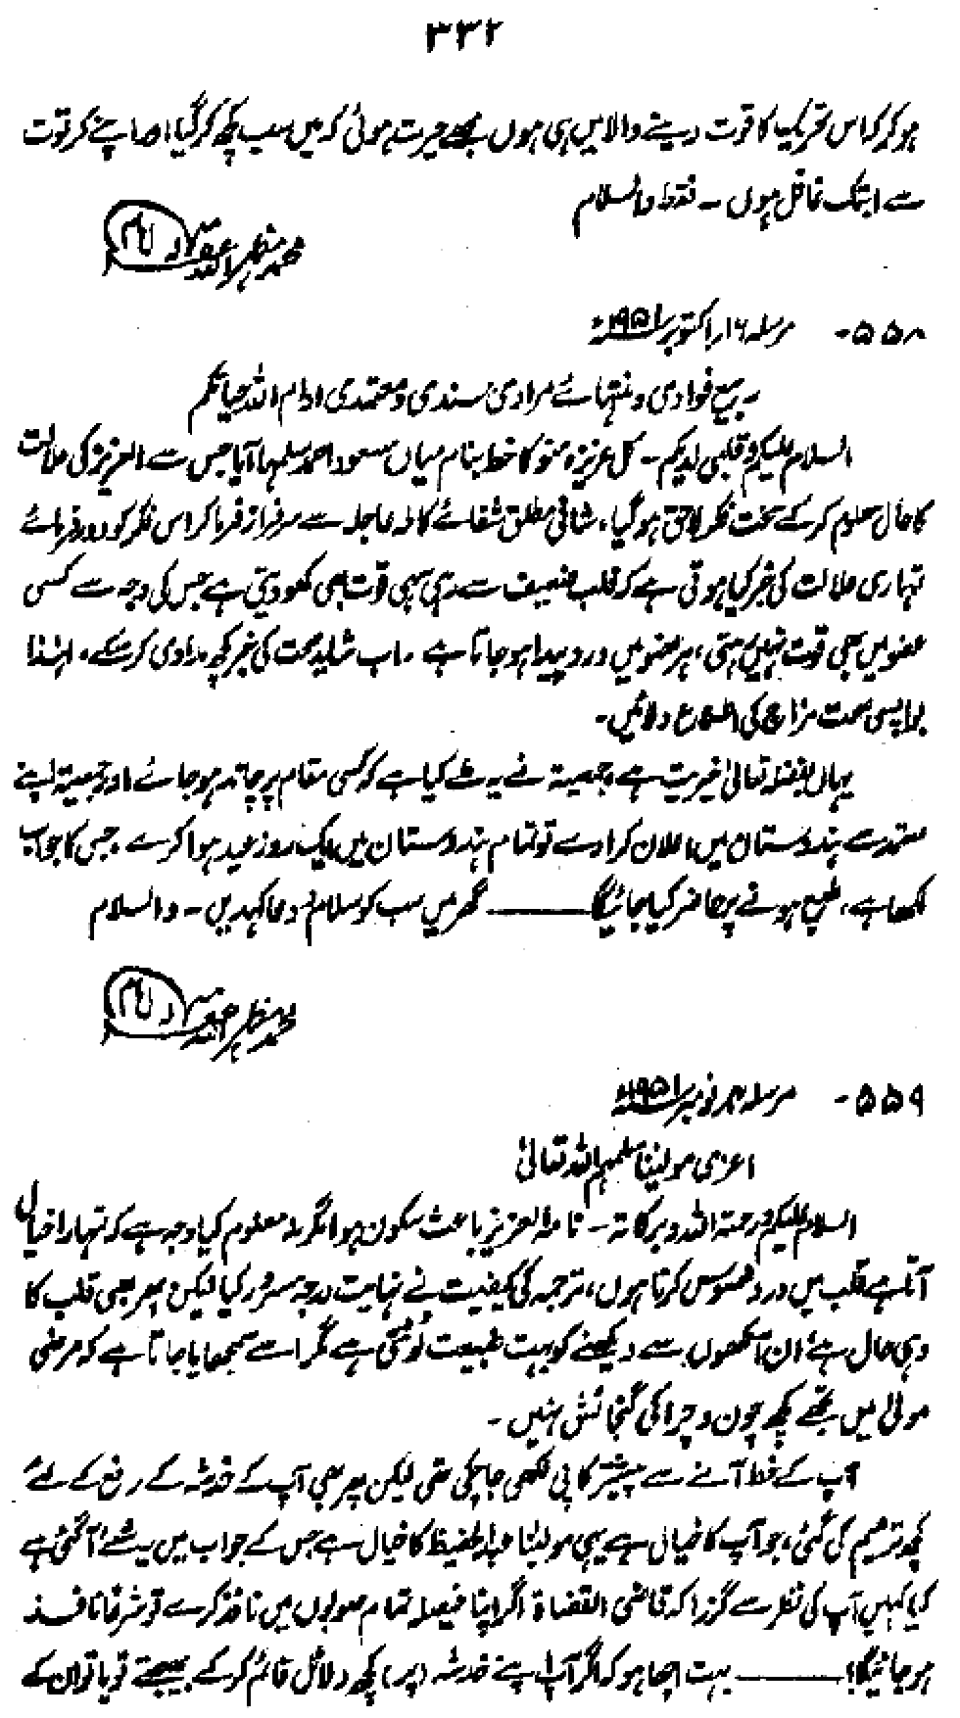 ۳۳۲
ہو کر کہ اس تحریک کا قوت دینے والا میں ہی ہوں مجھے حیرت ہوئی کہ میں سب کچھ کر گیا اور اپنے کرتوت
سے ابتک غافل ہوں ۔ فقط والسلام
محمد مظہر اللہ غفرلہ
۵۵۸ - مرسلہ ۱۶ر اکتوبر ۱۹۵۱ء
ربیع فوادی و منتہائے مرادی سندی و معتمدی ادام اللہ حیاتکم
السلام علیکم و قلبی لدیکم ۔ کل عزیزہ منو کا خط بنام میاں مسعود احمد سلمہا آیا جس سے العزیز کی علالت
کا حال معلوم کر کے سخت فکر لاحق ہو گیا، شافی مطلق شفائے کاملہ عاجلہ سے سرفراز فرما کر اس فکر کو دور فرمائے
تمہاری علالت کی خبر کیا ہوتی ہے کہ قلب ضعیف سے رہی سہی قوت بھی کھو دیتی ہے جس کی وجہ سے کسی
عضو میں بھی قوت نہیں رہتی، ہر عضو میں درد پیدا ہو جاتا ہے ۔ اب شاید صحت کی خبر کچھ مداوی کر سکے، لہٰذا
بواپسی صحت مزاج کی اطلاع دلائیں۔
یہاں بفضلہ تعالیٰ خیریت ہے، جمعیۃ نے یہ طے کیا ہے کہ کسی مقام پر چاند ہو جائے اور جمعیۃ اپنے
معتمد سے ہندوستان میں اعلان کرا دے تو تمام ہندوستان میں ایک روز عید ہوا کرے، جس کا جواب
لکھا ہے، طبع ہونے پر حاضر کیا جائیگا ——— گھر میں سب کو سلام و دعا کہدیں ۔ والسلام
محمد مظہر اللہ غفرلہ
۵۵۹ - مرسلہ نومبر ۱۹۵۱ء
اعزی مولینا سلمہم اللہ تعالیٰ
السلام علیکم ورحمۃ اللہ و برکاتہ ۔ نامۂ العزیز باعث سکون ہوا مگر نہ معلوم کیا وجہ ہے کہ تمہارا خیال
آتے ہی قلب میں درد محسوس کرتا ہوں، ترجمہ کی کیفیت نے نہایت درجہ مسرور کیا لیکن پھر بھی قلب کا
وہی حال ہے، ان آنکھوں سے دیکھنے کو بہت طبیعت لوٹتی ہے مگر اسے سمجھایا جاتا ہے کہ مرضی
مولیٰ میں تجھے کچھ چون و چرا کی گنجائش نہیں ۔
آپ کے خط آنے سے پیشتر کاپی لکھی جا چکی تھی لیکن پھر بھی آپ کے خدشہ کے رفع کے لئے
کچھ ترمیم کی گئی، جو آپ کا خیال ہے یہی مولینا عبدالحفیظ کا خیال ہے جس کے جواب میں یہ شئے آ گئی ہے
کیا کہیں آپ کی نظر سے گزرا کہ قاضی القضاۃ اگر اپنا فیصلہ تمام صوبوں میں نافذ کرے تو شرعًا نافذ
ہو جائیگا؟ ——— بہت اچھا ہو کہ اگر آپ اپنے خدشہ (پر) کچھ دلائل قائم کر کے بھیجتے تو یا تو ان کے